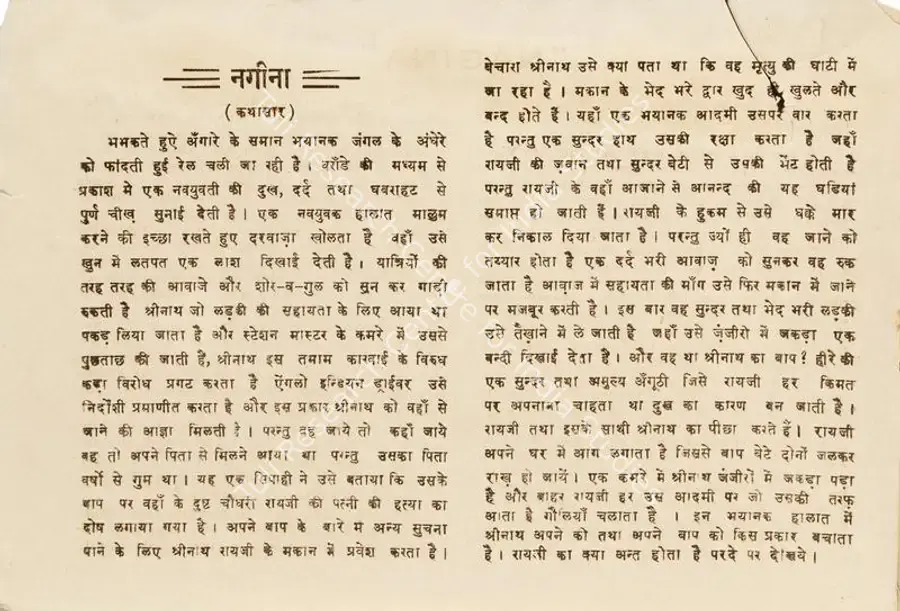 नगीना
(कथासार)
भभकते हुऐ अँगारे के समान भयानक जंगल के अंधेरे
को फांदती हुई रेल चली जा रही है। बाँडे की मध्यम से
प्रकाश मे एक नवयुवती की दुख, दर्द तथा घबराहट से
पुर्ण चीख़ सुनाई देती है। एक नवयुवक हालात मालुम
करने की इच्छा रखते हुए दरवाज़ा खोलता है वहाँ उसे
खुन में लतपत एक लाश दिखाई देती है। यात्रियों की
तरह तरह की आवाजे और शोर-ब-गुल को सुन कर गाडी
रुकती है श्रीनाथ जो लड़की की सहायता के लिए आया था
पकड़ लिया जाता है और स्टेशन मास्टर के कमरे में उससे
पुछताछ की जाती हैं, श्रीनाथ इस तमाम कारवाई के विरुध
कडा विरोध प्रगट करता है ऐंगलो इन्डियन ड्राईवर उसे
निर्दोशी प्रमाणीत करता है और इस प्रकार श्रीनाथ को वहाँ से
जाने की आज्ञा मिलती है। परन्तु वह जाये तो कहाँ जाये
वह तो अपने पिता से मिलने आया था परन्तु उसका पिता
वर्षो से गुम था। यह एक सिपाही ने उसे बताया कि उसके
बाप पर वहाँ के दुष्ट चौधरी रायजी की पत्नी की हत्या का
दोष लगाया गया है। अपने बाप के बारे में अन्य सुचना
पाने के लिए श्रीनाथ रायजी के मकान में प्रवेश करता है।
बेचारा श्रीनाथ उसे क्या पता था कि वह मृत्यु की घाटी में
जा रहा है। मकान के भेद भरे द्वार खुद ही खुलते और
बन्द होते हैं। यहाँ एक भयानक आदमी उसपर वार करता
है परन्तु एक सुन्दर हाथ उसकी रक्षा करता है जहाँ
रायजी की ज़वान तथा सुन्दर बेटी से उसकी भेंट होती है
परन्तु रायजी के वहाँ आजाने से आनन्द की यह घडियां
समाप्त हो जाती हैं। रायजी के हुकम से उसे धक्के मार
कर निकाल दिया जाता है। परन्तु ज्यों ही वह जाने को
तय्यार होता है एक दर्द भरी आवाज़ को सुनकर वह रुक
जाता है आवाज़ में सहायता की माँग उसे फिर मकान में जाने
पर मजबूर करती है। इस बार वह सुन्दर तथा भेद भरी लड़की
उसे तैख़ाने में ले जाती है जहाँ उसे जंजीरो में जकडा एक
बन्दी दिखाई देता है। और वह था श्रीनाथ का बाप? हीरे की
एक सुन्दर तथा अमुल्य अँगूठी जिसे रायजी हर किमत
पर अपनाना चाहता था दुख का कारण बन जाती है।
रायजी तथा इसके साथी श्रीनाथ का पीछा करते हैं। रायजी
अपने घर में आग लगाता है जिससे बाप बेटे दोनों जलकर
राख़ हो जायें। एक कमरे में श्रीनाथ जंजीरों में जकड़ा पड़ा
है और बाहर रायजी हर उस आदमी पर जो उसकी तरफ़
आता है गोलियाँ चलाता है । इन भयानक हालात में
श्रीनाथ अपने को तथा अपने बाप को किस प्रकार बचाता
है। रायजी का क्या अन्त होता है परदे पर देखिये।